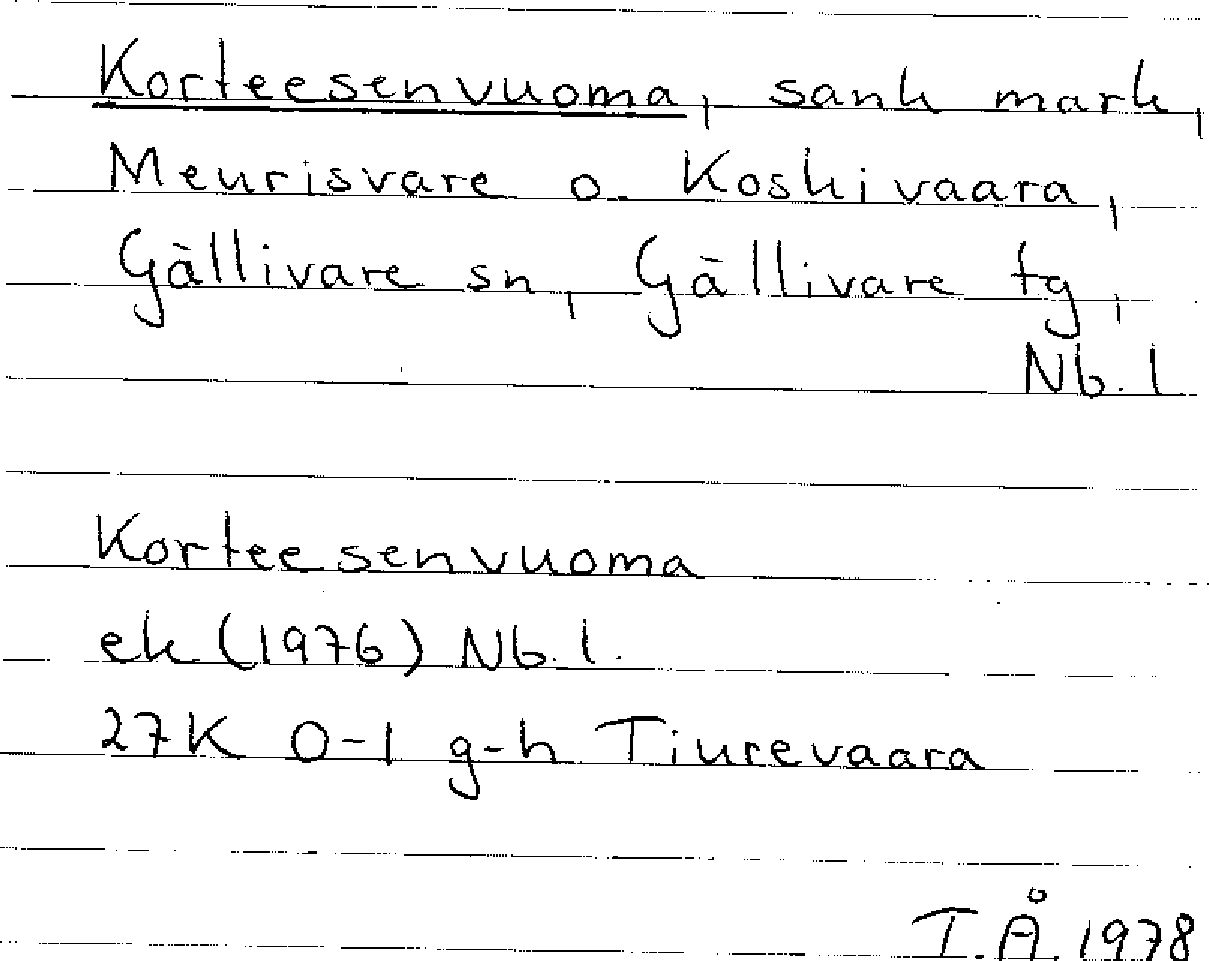 Korteesenvuoma, sank mark,
Meurisvare o. Koskivaara,
Gällivare sn, Gällivare tg,
Nb. l
Korteesenvuoma
ek (1976) Nb. l.
27K 0-1 g-h Tiurevaara
I.Å. 1978